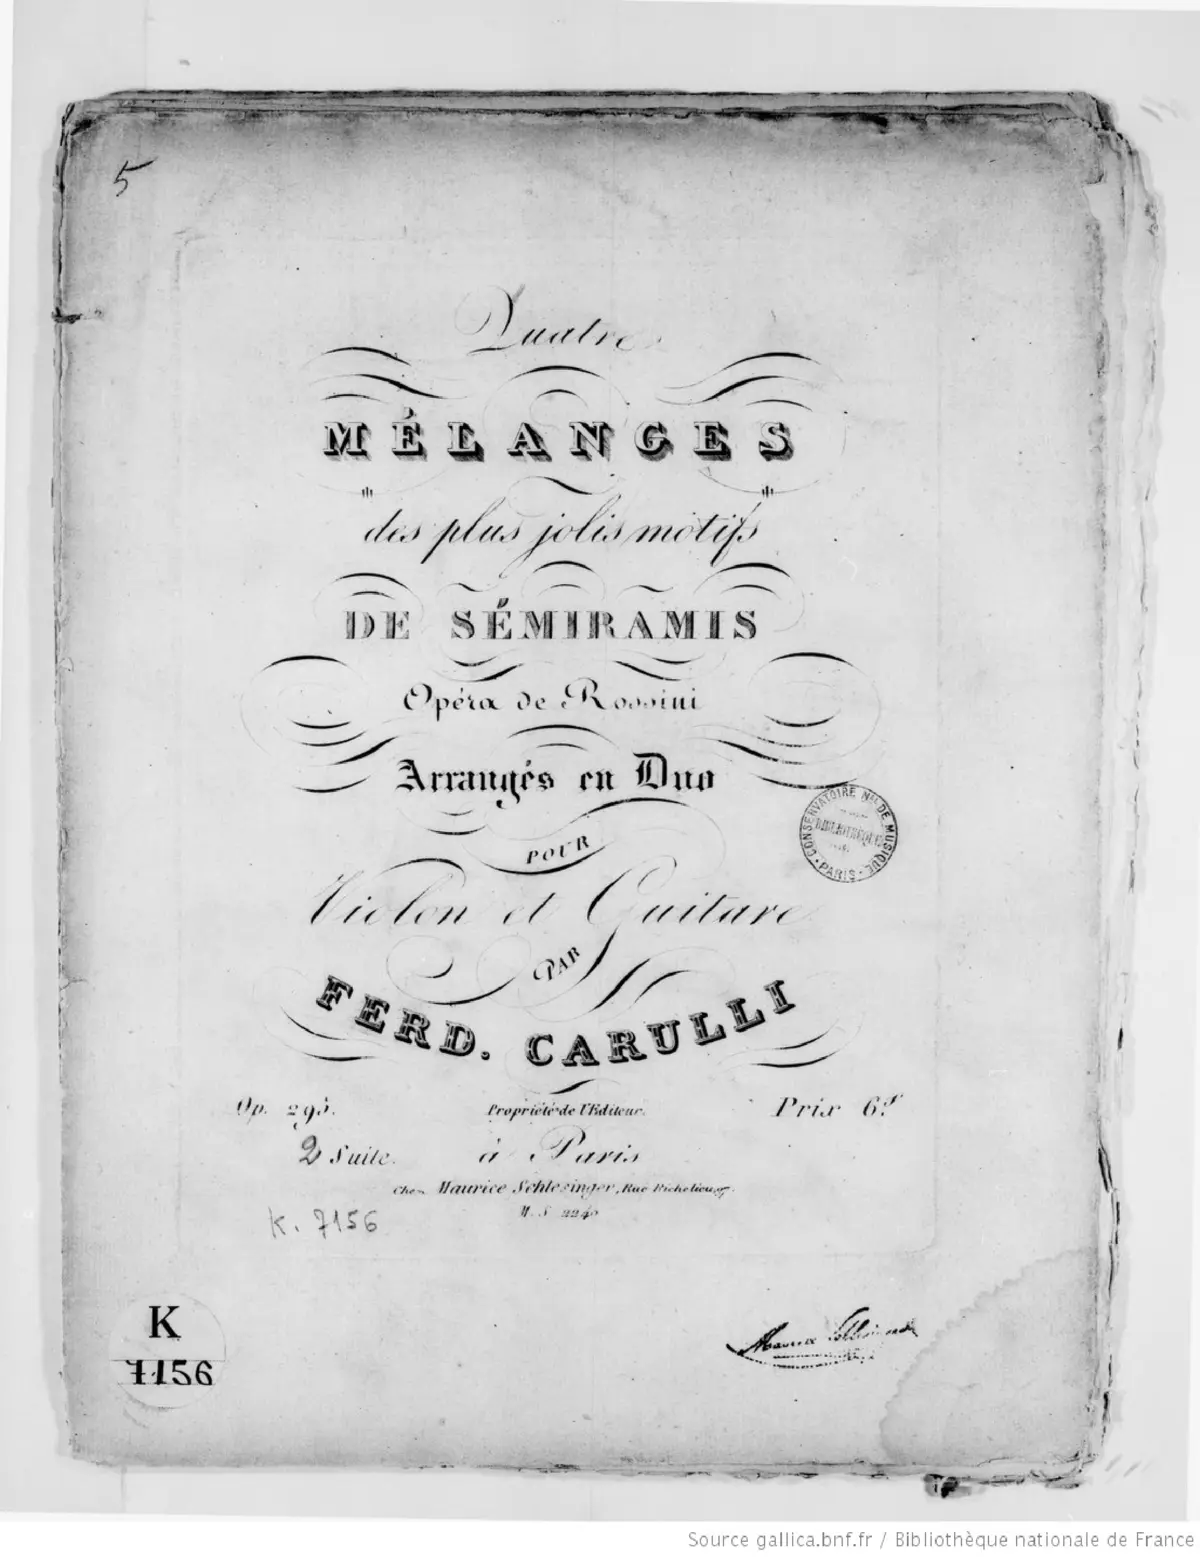 5
Quatre
MÉLANGES
des plus jolis motifs
DE SÉMIRAMIS
Opéra de Rossini
Arrangés en Duo
POUR
Violon et Guitare
PAR
FERD. CARULLI
CONSERVATOIRE NAL DE MUSIQUE
BIBLIOTHÈQUE
PARIS
Op. 295. Propriété de l'Editeur. Prix 6f
2 Suite. à Paris
Chez Maurice Schlesinger, Rue Richelieu 97.
M. S. 2240
K. 7156
K
7156
Maurice Schlesinger
Source gallica.bnf.fr / Bibliothèque nationale de France